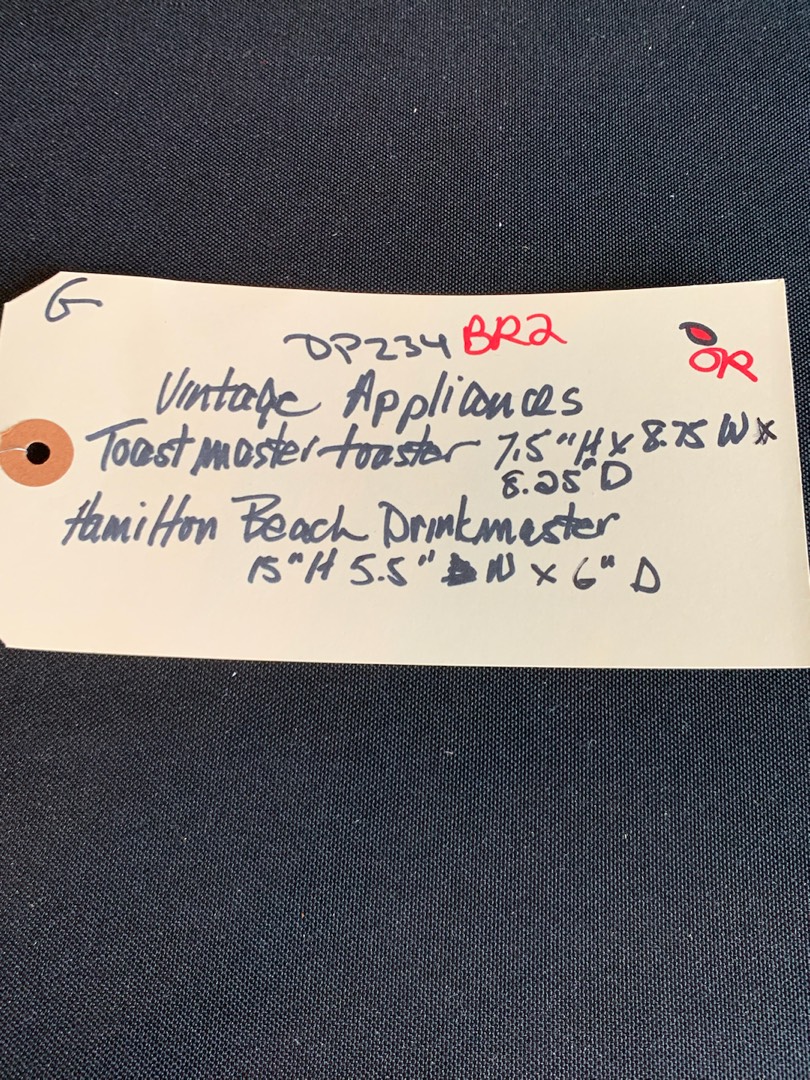 G
DP234 BR2
OR
Vintage Appliances
Toastmaster toaster 7.5"H x 8.75 W x
8.25"D
Hamilton Beach Drinkmaster
15"H 5.5" W x 6" D